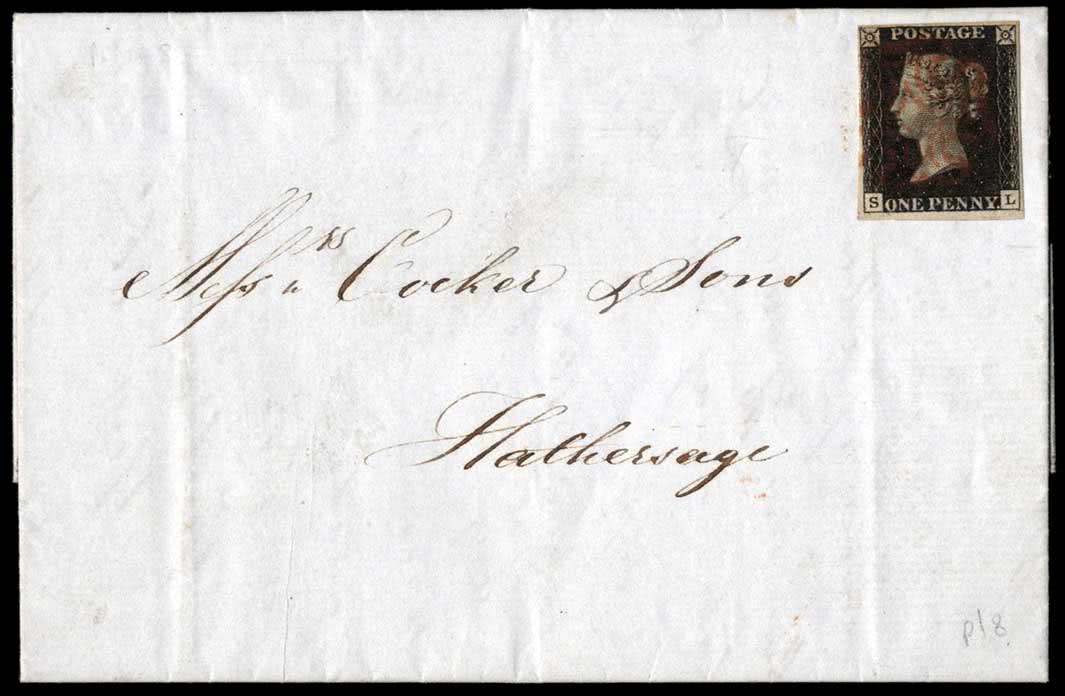 POSTAGE
S ONE PENNY. L
Messrs Cocker & Sons
Hathersage
pl 8